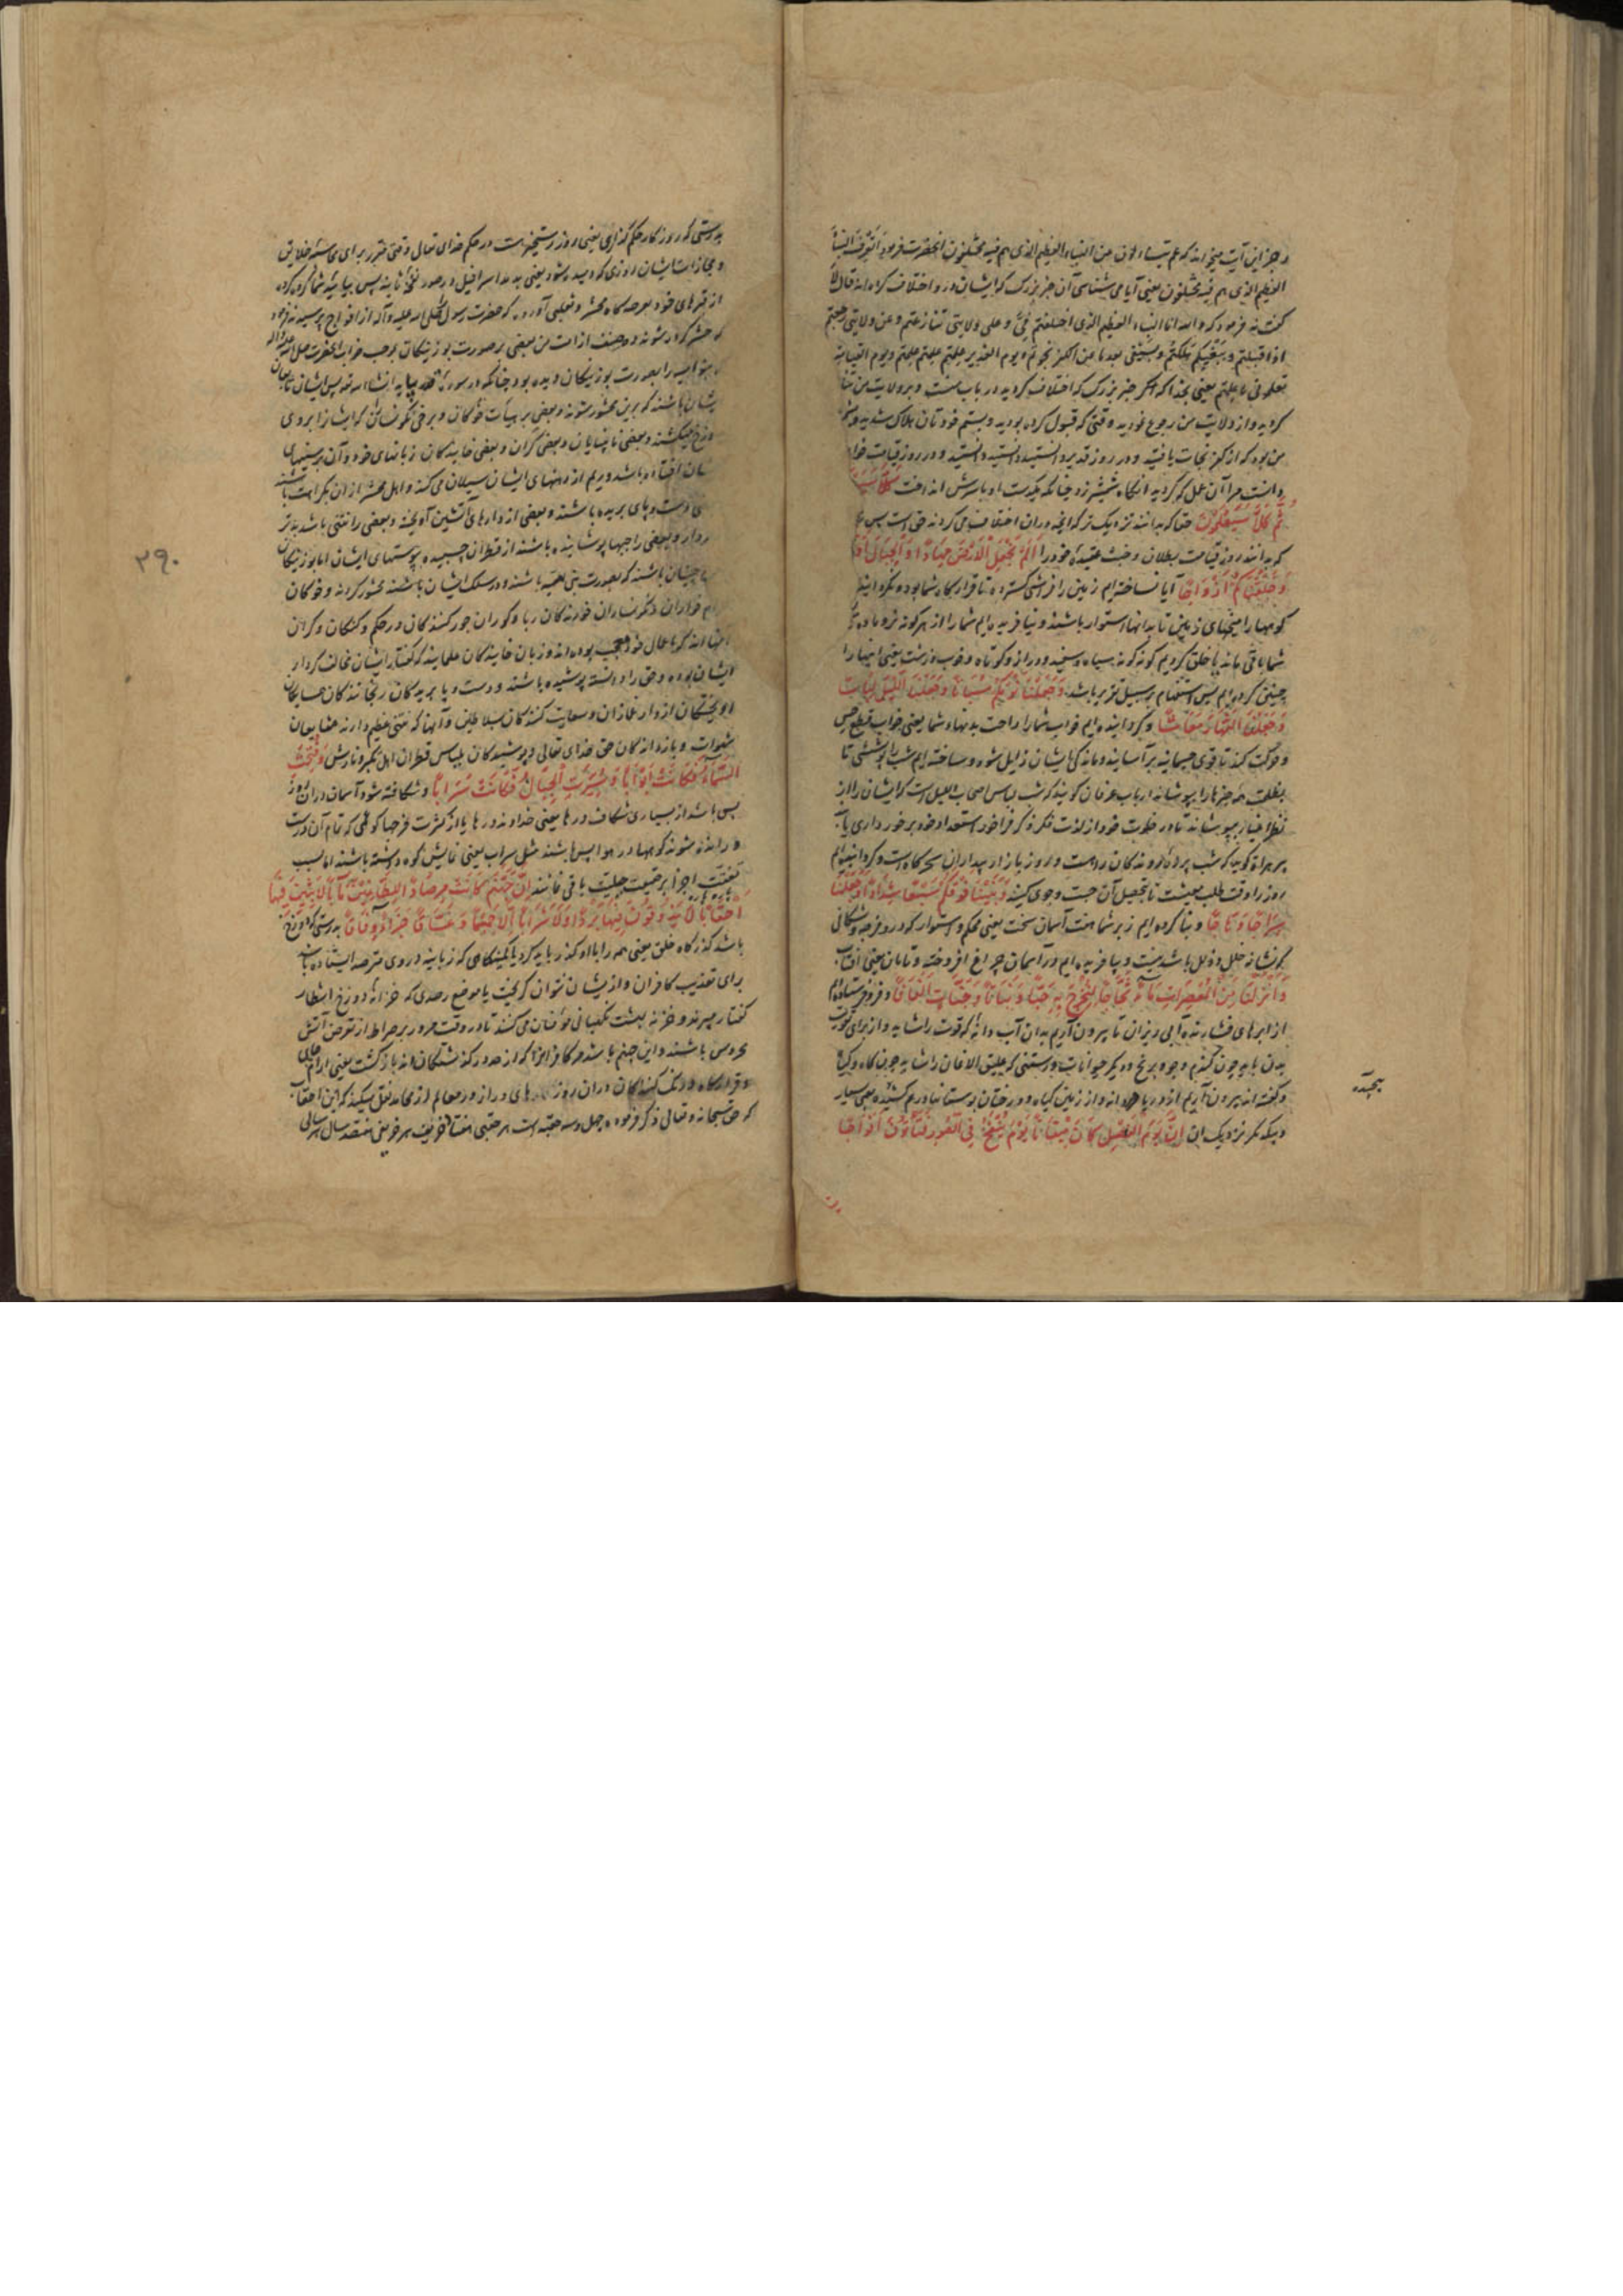 و جز این آیت میخواند که عم یتساءلون عن النباء العظیم الذی هم فیه مختلفون انحضرت فرمود اتعرف النبأ
العظیم الذی هم فیه مختلفون یعنی آیا می شناسی آن خبر بزرک که ایشان در و اختلاف کرده اند قال لا
کفت نه فرمود که والله انا النباء العظیم الذی اختلفتم فی و علی ولایتی تنازعتم و عن ولایتی رجعتم
بعد ما قبلتم و ببغیکم هلکتم و بسیفی بعد ما من الکفر نجوتم و یوم الغدیر علمتم علمتم علمتم و یوم القیامة
تعلمون ما علمتم یعنی بخدا که منم خبر بزرک که اختلاف کردید در باب من و بر ولایت من تنازع
کردید و از ولایت من رجوع نمودید وقتی که قبول کرده بودید و بستم خودتان هلاک شدید و بشمشیر
من بود که از کفر نجات یافتید و در روز غدیر دانستید دانستید دانستید و در روز قیامت خواهید
دانست مر آن عمل که کردید انکاه شمشیر زد چنانکه یکدست او با سرش انداخت کَلَّا سَیَعْلَمُونَ
ثُمَّ کَلَّا سَیَعْلَمُونَ حقا که بدانند نزدیک که آنچه در ان اختلاف می کردند حق است پس
که بدانند روز قیامت بطلان و خبث عقیدهٔ خود را اَلَمْ نَجْعَلِ الْاَرْضَ مِهَاداً وَ الْجِبَالَ اَوْتَاداً
وَ خَلَقْنَاکُمْ اَزْوَاجاً آیا نساخته ایم زمین را فرشی کسترده تا قرارکاه شما بود و نکردانیده
کوهها را میخهای زمین تا بدانها استوار باشند و نیافریده ایم شما را از هر کونه نر و ماده
شما باقی ماند یا خلق کردیم کونه کونه سیاه و سفید و دراز و کوتاه و خوب و زشت یعنی اینها را
چنین کرده ایم پس استفهام بر سبیل تقریر باشد وَ جَعَلْنَا نَوْمَکُمْ سُبَاتاً وَ جَعَلْنَا اللَّیْلَ لِبَاساً
وَ جَعَلْنَا النَّهَارَ مَعَاشاً و کردانیده ایم خواب شما را راحت بدنهاء شما یعنی خواب قطع حس
و حرکت کند تا قوی حیوانیه بر آسایند و ماندکی ایشان زایل شود و ساخته ایم شب را پوششی تا
بظلمت همه چیزها را بپوشاند ارباب عرفان کویند که شب لباس اصحاب اللیل است که ایشان را از
نظر اغیار بپوشاند تا در خلوت خود از لذت فکر و ذکر فراخور استعداد خود برخورداری یابند
روز را وقت طلب معیشت تا تحصیل آن جست و جوی کنید وَ بَنَیْنَا فَوْقَکُمْ سَبْعاً شِدَاداً وَ جَعَلْنَا
سِرَاجاً وَهَّاجاً و بنا کرده ایم زبر شما هفت آسمان سخت یعنی محکم و استوار که درو فرجه و شکافی
که نشانه خلل و ذلل باشد نیست و بیافریده ایم در آسمان چراغ افروخته و تابان یعنی آفتاب
وَ اَنْزَلْنَا مِنَ الْمُعْصِرَاتِ مَاءً ثَجَّاجاً لِنُخْرِجَ بِهِ حَبّاً وَ نَبَاتاً وَ جَنَّاتٍ اَلْفَافاً و فرو فرستاده ایم
از ابرهای فشارنده آبی ریزان تا بیرون آریم بدان آب دانهٔ که قوت را شاید و از برای قوت
بدن باید چون کندم و جو و برنج و دیکر حبوبات و رستنی که علیق الافان را شاید چون کاه و کیاه
و کفته اند بیرون آریم از دریا دردانه و از زمین کیاه و درختان بوستانها درهم کشیده یعنی بسیار
و بیکدیکر نزدیک اِنَّ یَوْمَ الْفَصْلِ کَانَ مِیقَاتاً یَوْمَ یُنْفَخُ فِی الصُّورِ فَتَأْتُونَ اَفْوَاجاً
بدرستی که روز کار حکم کذاری یعنی روز رستخیز هست در حکم خدای تعالی وقتی مقرر برای محاسبهٔ خلایق
و مجازات ایشان روزی که دمیده شود یعنی بدمد اسرافیل در صور نفخهٔ ثانیه پس بیایید شما کروه کروه
از قبرهای خود بعرصه کاه محشر و ثعلبی آورده که حضرت رسول صلی الله علیه و آله از افواج پرسیدند فرمود
که حشر کرده شوند ده صنف از امت من بعضی بر صورت بوزینکان بموجب خواب انحضرت صلی الله علیه و آله
بنو امیه را بصورت بوزینکان دیده بود چنانکه در سوره قدر بیاید انشاء الله تعالی پس ایشان تابعان
ایشان باشند که بدین محشور شوند و بعضی بر هیأت خوکان و برخی نکونساران که ایشان را بروی
دوزخ میکشند و بعضی نابینایان و بعضی کران و بعضی خایندکان زبانهای خود و آن بر سینهای
شان افتاده باشد و ریم از دهنهای ایشان سیلان می کند و اهل محشر از ان بکراهت باشند
دست و پای بریده باشند و بعضی از دارهای آتشین آویخته و بعضی را نتنی باشد بدتر
مردار و بعضی را جبها پوشانیده باشند از قطران چسپیده بپوستهای ایشان اما بوزینکان
سخن چینان باشند که بصورت بنی امیه باشند و در سلک ایشان باشند محشور کردند و خوکان
حرام خواران و نکونساران خورندکان ربا و کوران جور کنندکان در حکم و کنکان و کران
آنها اند که باعمال خود معجب بوده اند و زبان خایندکان علمایند که کفتار ایشان مخالف کردار
ایشان بوده و حق را دانسته پوشیده باشند و دست و پا بریدکان رنجانندکان همسایکان
و آویختکان از دار غمازان و سعایت کنندکان بسلاطین و آنها که نتنی عظیم دارند متابعان
شهوات و بازدارندکان حق خدای تعالی و پوشیدکان بلباس قطران اهل تکبر و نازش وَ فُتِحَتِ
السَّمَاءُ فَکَانَتْ اَبْوَاباً وَ سُیِّرَتِ الْجِبَالُ فَکَانَتْ سَرَاباً و شکافته شود آسمان در ان روز
پس باشد از بسیاری شکاف درها یعنی خداوند درها یا از کثرت فرجها کوئی که تمام آن درست
و رانده شوند کوهها در هوا پس باشند مثل سراب یعنی نمایش کوه داشته باشند اما بسبب
تفتت اجزا بر حقیقت جبلیت باقی نمانند اِنَّ جَهَنَّمَ کَانَتْ مِرْصَاداً لِلطَّاغِینَ مَآباً لَابِثِینَ فِیهَا
اَحْقَاباً لَا یَذُوقُونَ فِیهَا بَرْداً وَ لَا شَرَاباً اِلَّا حَمِیماً وَ غَسَّاقاً جَزَاءً وِفَاقاً بدرستی که دوزخ
باشد کذرکاه خلق یعنی همه را با او کذر باید کرد یا کمینکاهی که زبانیه در وی مترصد ایستاده باشند
برای تعذیب کافران و از ایشان نتوان کریخت یا موضع رصدی که خزانهٔ دوزخ انتظار
کفتار میبرند و خزنه بهشت نکهبانی مؤمنان می کنند تا در وقت مرور بر صراط از تعرض آتش
محروس باشند و این جهنم باشد مر کافرانرا که از حد در کذشتکان اند بازکشت یعنی آرامکاه
و قرارکاه و درنک کنندکان در ان روزکارهای دراز و در معالم از مجاهد نقل میکند که این احقاب
که حق سبحانه و تعالی ذکر فرموده چهل و سه حقبه است هر حقبی هفتاد خریف هر خریفی هفتصد سال هر سالی
۳۹۰